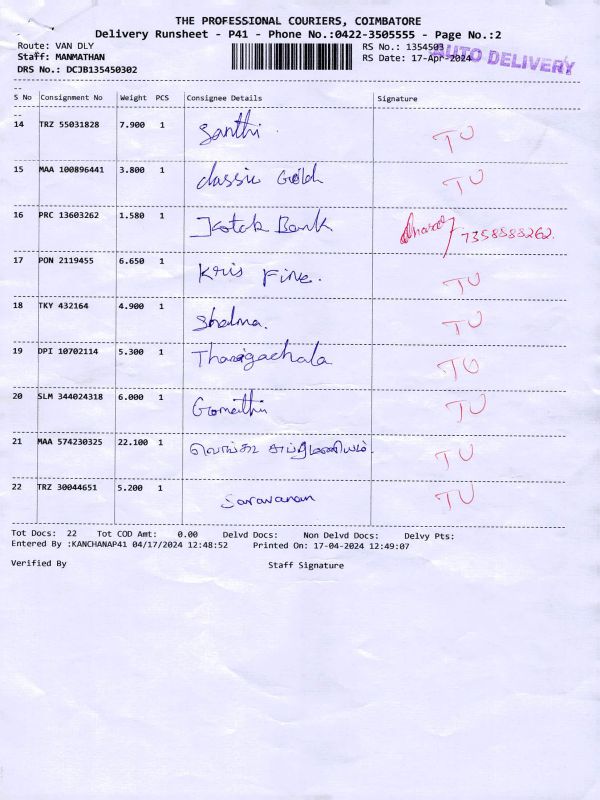 THE PROFESSIONAL COURIERS, COIMBATORE
Delivery Runsheet - P41 - Phone No.:0422-3505555 - Page No.:2
Route: VAN DLY RS No.: 1354503
Staff: MANMATHAN RS Date: 17-Apr-2024
AUTO DELIVERY
DRS No.: DCJB135450302
S No Consignment No Weight PCS Consignee Details Signature
14 TRZ 55031828 7.900 1 Santhi TU
15 MAA 100896441 3.800 1 classic Gold TU
16 PRC 13603262 1.580 1 Kotak Bank 7358588262
17 PON 2119455 6.650 1 Kris Fine. TU
18 TKY 432164 4.900 1 TU
19 DPI 10702114 5.300 1 TU
20 SLM 344024318 6.000 1 Gomathi TU
21 MAA 574230325 22.100 1 TU
22 TRZ 30044651 5.200 1 Saravanan TU
Tot Docs: 22 Tot COD Amt: 0.00 Delvd Docs: Non Delvd Docs: Delvy Pts:
Entered By :KANCHANAP41 04/17/2024 12:48:52 Printed On: 17-04-2024 12:49:07
Verified By Staff Signature